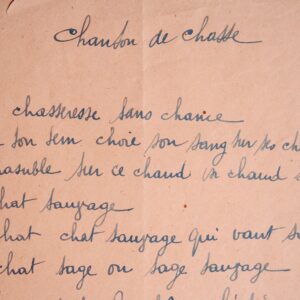 Chanson de chasse
chasseresse sans chance
son sein choie son sang sur ses ch
asuble sur ce chaud un chaud s
hat sauvage
hat chat sauvage qui vaut s
chat sage ou sage sauvage